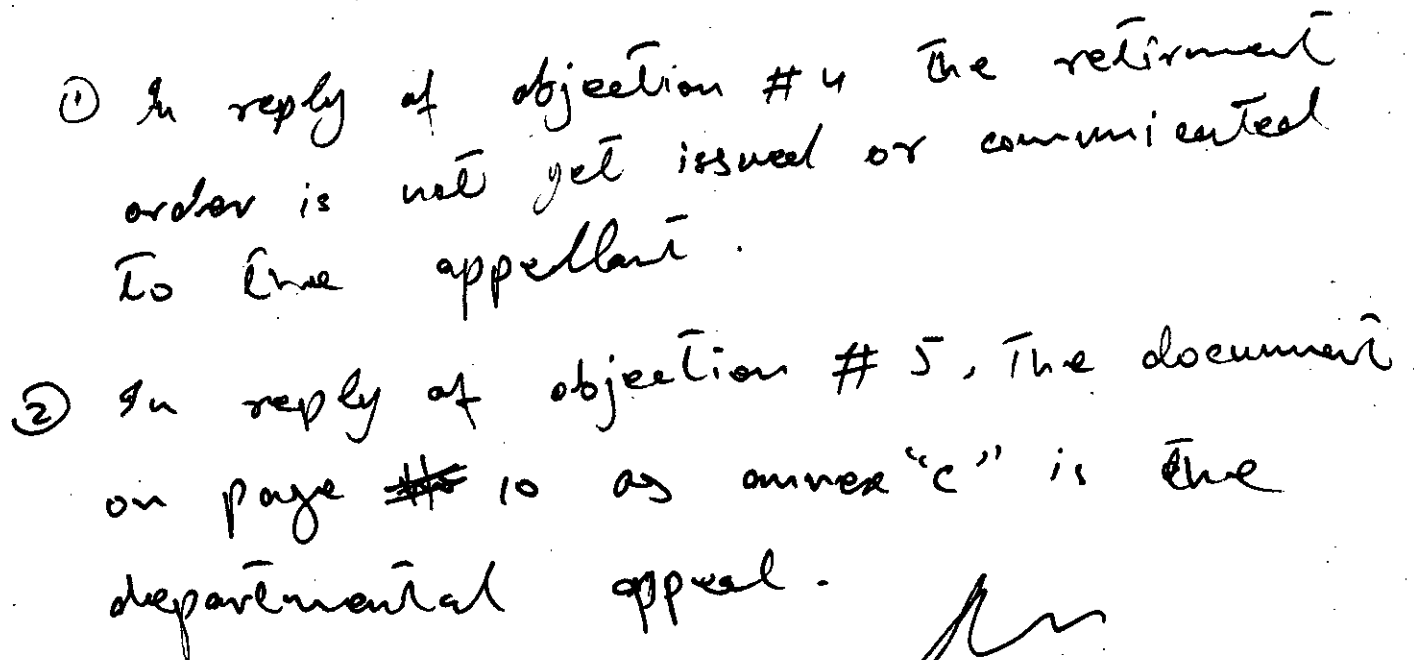 ① In reply of objection # 4 The retirment
order is not yet issued or communicated
To the appellant.
② In reply of objection # 5, The document
on page # 10 as annex "c" is the
departmental appeal.